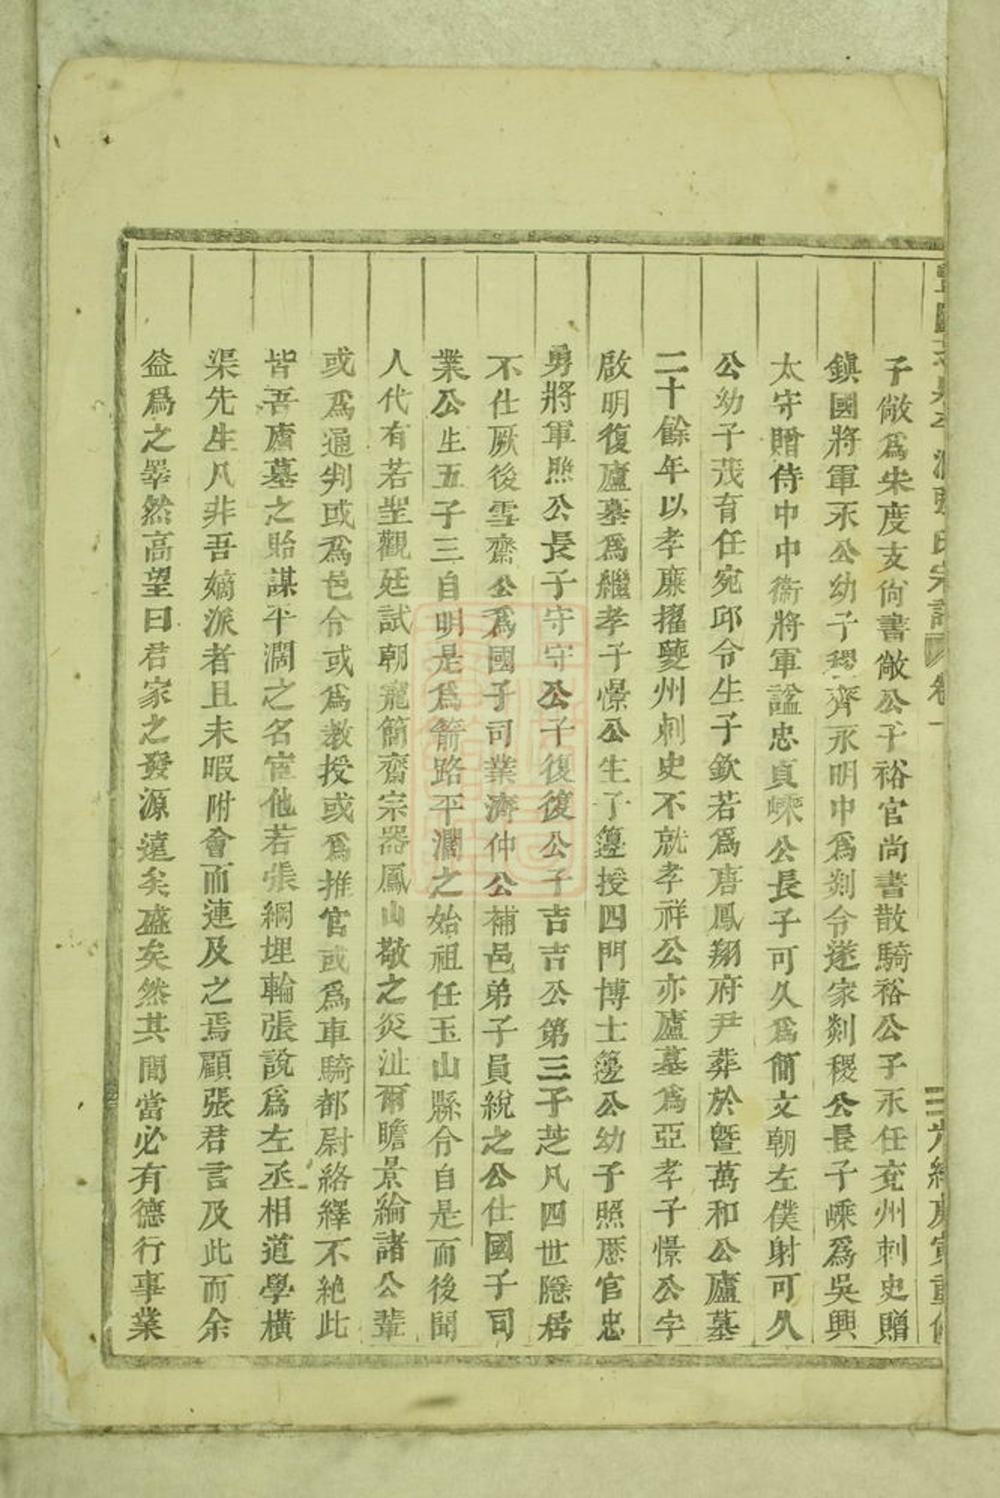 子敞爲宋度支尙書敞公子裕官尚書散騎裕公子永任兗州刺史贈
鎮國將軍永公幼子稷齊永明中爲剡令遂家剡稷公長子嵊爲吳興
太守贈侍中中衞將軍諡忠貞嵊公長子可久爲簡文朝左僕射可久
公幼子茂育任宛邱令生子欽若爲唐鳳翔府尹葬於曁萬和公廬墓
二十餘年以孝廉擢夔州刺史不就孝祥公亦廬墓爲亞孝子憬公字
啟明復廬墓爲繼孝子憬公生子籩授四門博士籩公幼子照歴官忠
勇將軍照公長子守守公子復復公子吉吉公第三子芝凡四世隱居
不仕厥後雪齋公爲國子司業濟仲公補邑弟子員統之公仕國子司
業公生五子三自明是爲箭路平濶之始祖任玉山縣令自是而後聞
人代有若聖觀廷試朝寵簡齋宗器鳳山敬之炎沚爾瞻景綸諸公輩
或爲通判或爲邑令或爲教授或爲推官或爲車騎都尉絡繹不絶此
皆吾廬墓之貽謀平濶之名宦他若張綱埋輪張說爲左丞相道學橫
渠先生凡非吾嫡派者且未暇附會而連及之焉顧張君言及此而余
益爲之睪然高望曰君家之發源遠矣盛矣然其間當必有德行事業